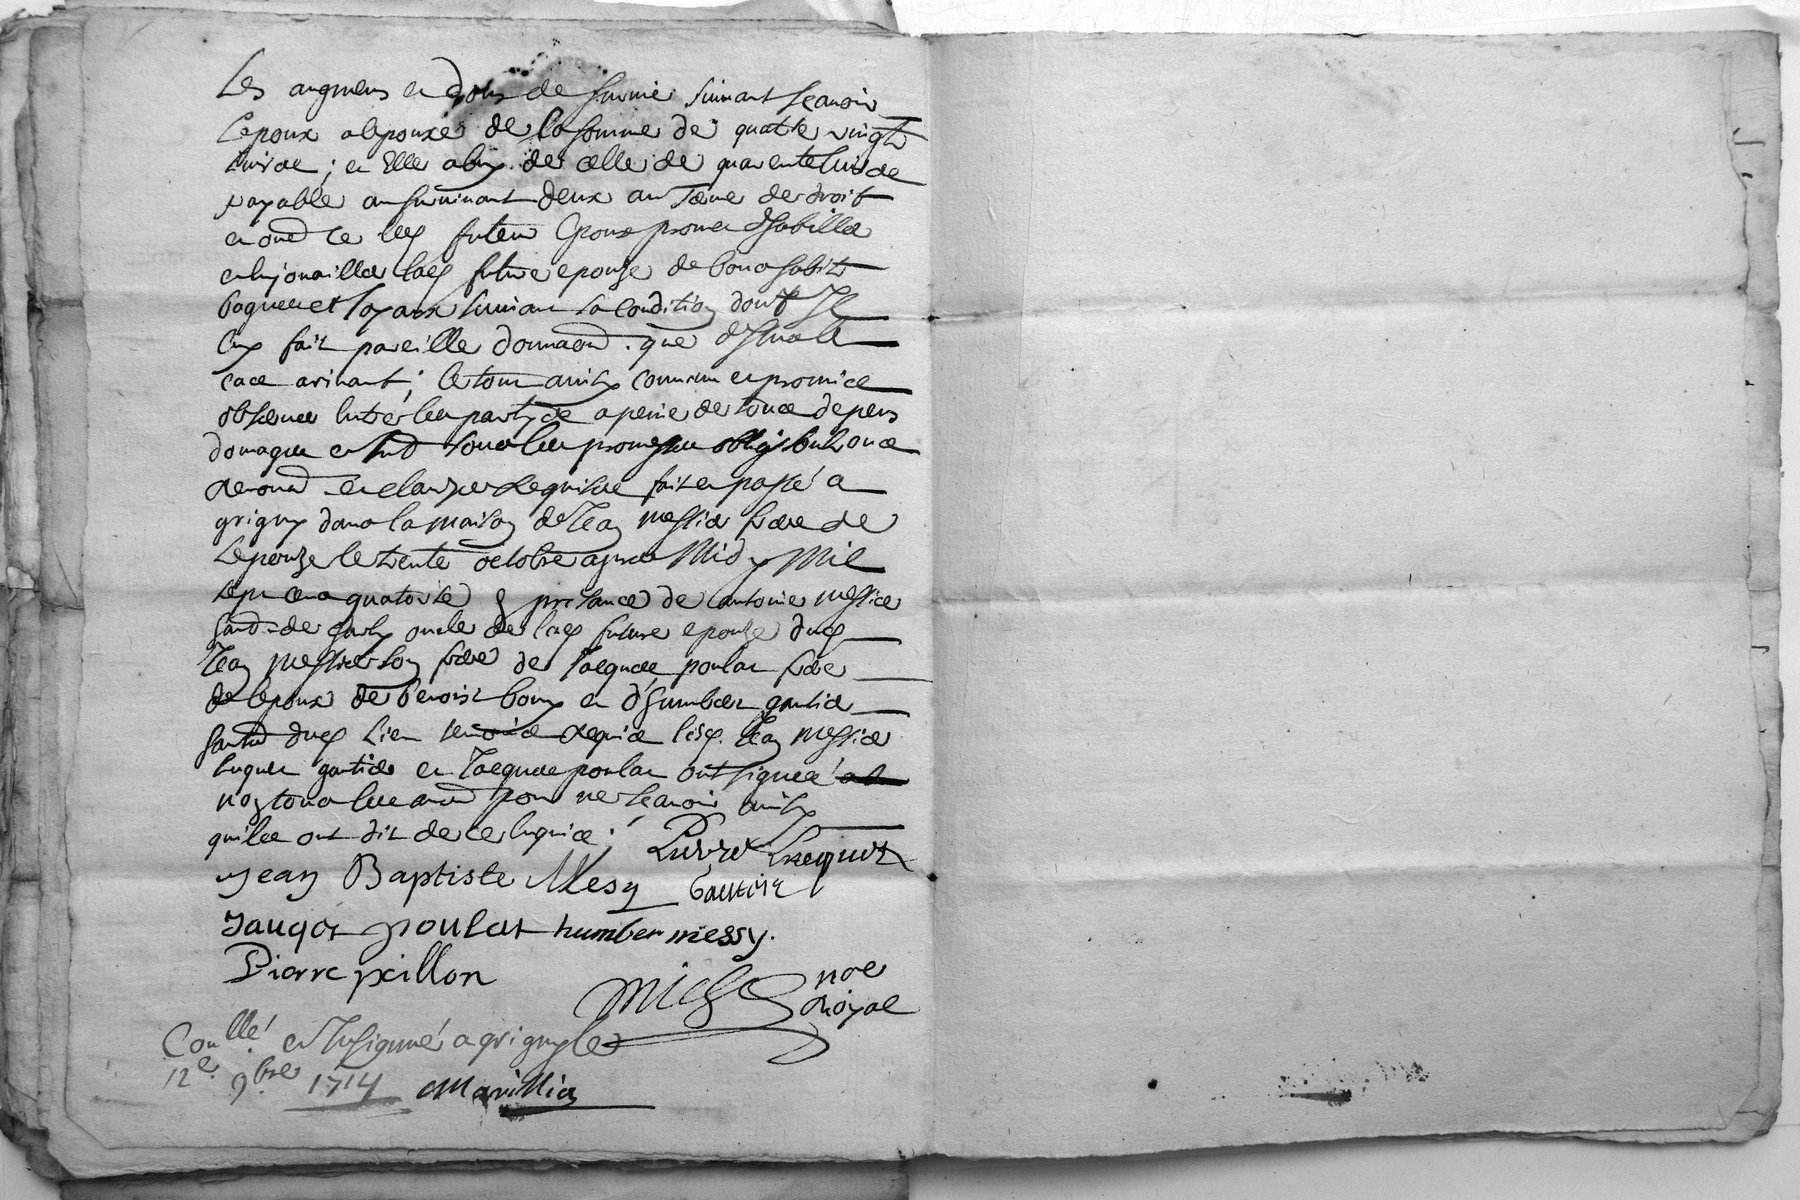 Les augmens et dons de survie suivant scavoir
lepoux a lepouze de la somme de quatre vingt
livres ; et Elle a luy de celle de quarente livres
payable au survivant deux au terme de droit
en oud ce led futeur Epoux promet dhabillé
enjouaillé lad future epouze de bons habits
bagues et joyaux suivant sa condition dont Il
luy fait pareille donnaon que dessus le
cas arivant ; le tout ainsy convenu et promis
observer entre les partyes a peine de tous depens
domages et sub toutes les promesses oblig soub
renond et clauzes requises fait et passé a
grigny dans la maison de Jean messier frere de
Lepouze le trente octobre apres Midy Mil
sept cens quatorze presance de antoine messier
oncle de lad future epouze dud
Jean messier son frere de Jacques poulat frere
de lepoux de benoist bony et dhumbert gautier
dud lieu temoins requis lesq. Jean messier
gautier et Jacques poulat ont signés
non tous les aud pour ne scavoir ainsy
quils ont dit de ce enquis .
Pierre
Jean Baptiste Mesy Gautier
Jauqes poulat humber messy.
Pierre peillon
nre
Royal
Conllé et Insignué a grigny le
12e. 9bre 1714